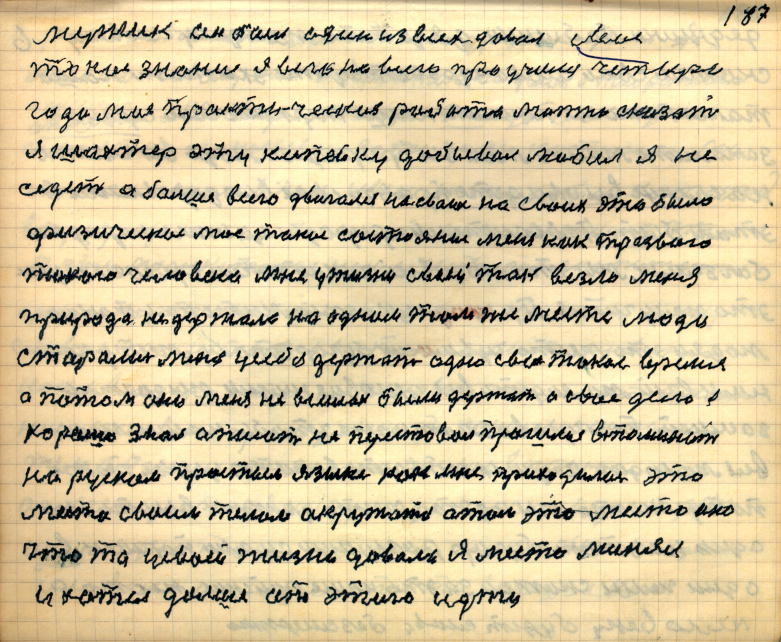 187
мерник он был один из всех довал свое
такое знание я всего на всего проучися четыре
года моя практическая работа можно сказат
я шахтер эту копейку добывал любил я не
седет а болше всего двигался на своих это было
физическое мое такое состояние меня как трезвого
такого человека мне у жизни своей так везло меня
природа недержала на одном том же месте люди
старалис меня у себя держат одно свое такое время
а потом оно меня не вышлах были держат а свое дело я
хорошо знал аписат не перестовал прошлое вспоминат
на руском простым языке как мне приходилос это
место своим телом акружат а том это место оно
что та у своей жизне довала я место менял
и хотел далше ат этого идти